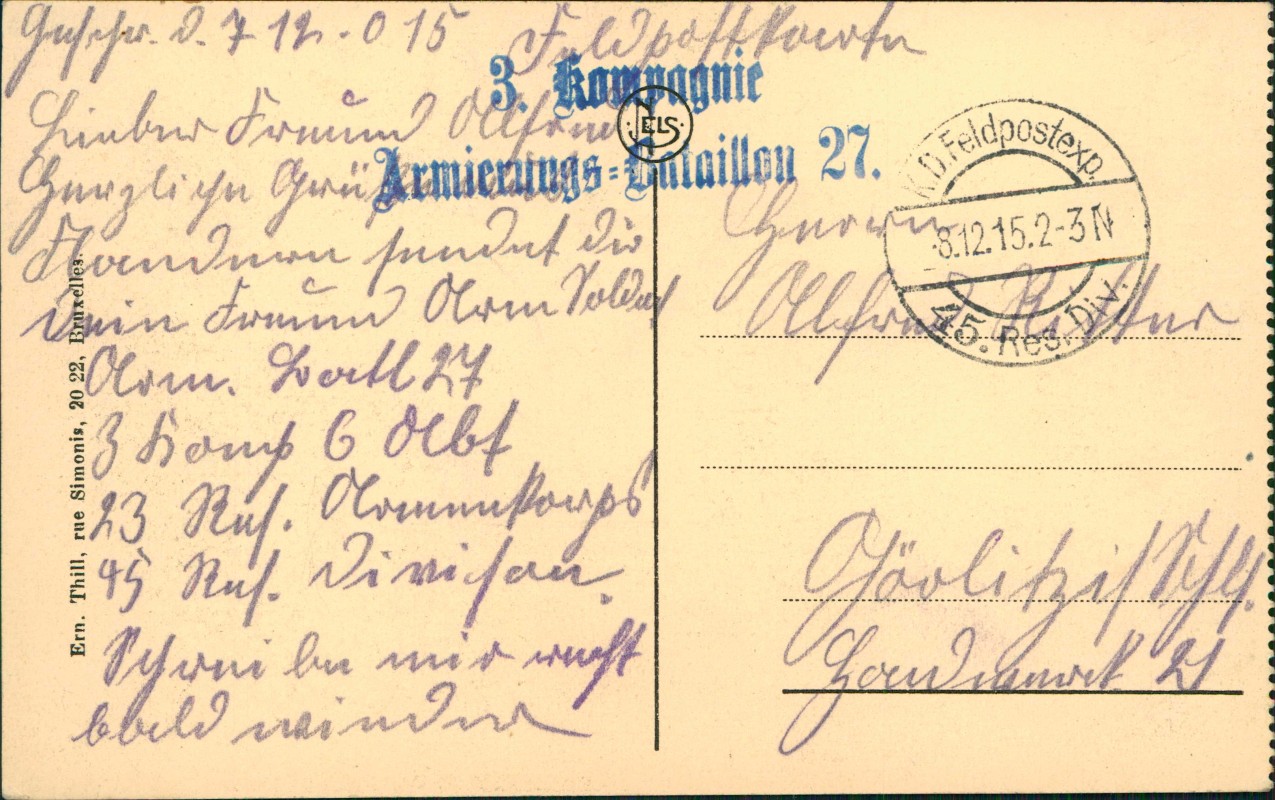 Geschr. d. 7 12. 015 Feldpostkarte
3. Kompagnie
Armierungs=Bataillon 27.
NELS
Lieber Freund Alfred
Herzliche Grüße aus
Flandern sendet dir
dein Freund Arm Soldat
Arm. Batl 27
3 Komp 6 Abt
23 Res. Armeekorps
45 Res. Division.
Schreibe mir recht
bald wieder
Ern. Thill, rue Simonis, 20 22, Bruxelles.
K.D. Feldpostexp.
8.12.15.2-3 N
45. Res. Div.
Herrn
Alfred
Görlitz i/Schls.
Handwerk 21